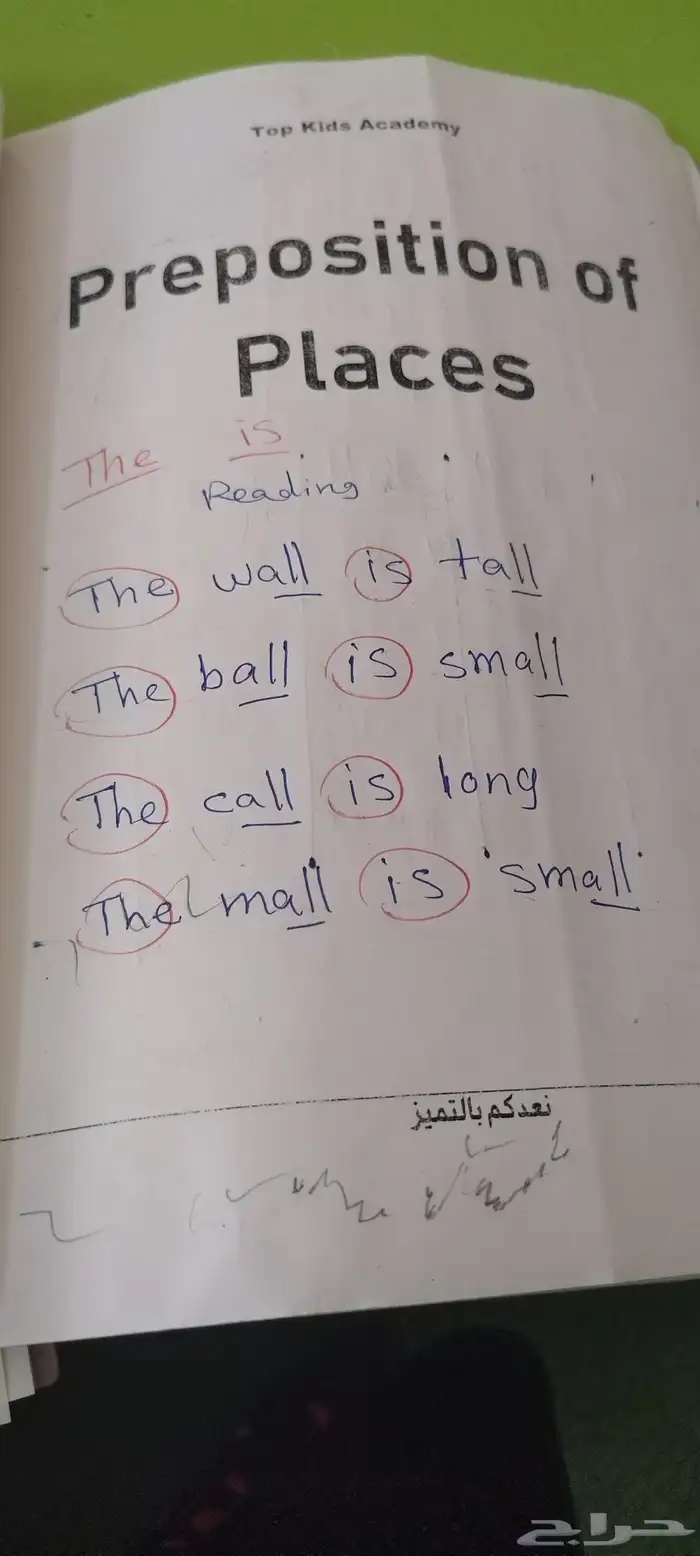 Top Kids Academy
Preposition of
Places
The is
Reading
The wall is tall
The ball is small
The call is long
The mall is small
نعدكم بالتميز
حراج